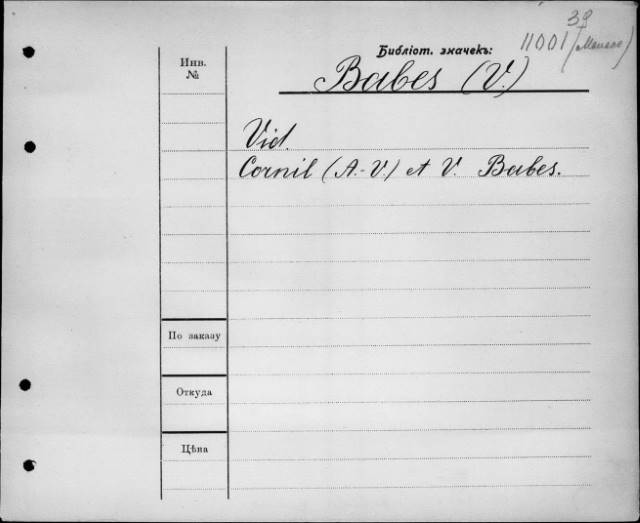 39
11001
Инв.
№
Библіот. значекъ:
Babes (V.)
Vid.
Cornil (A.-V.) et V. Babes.
По заказу
Откуда
Цѣна